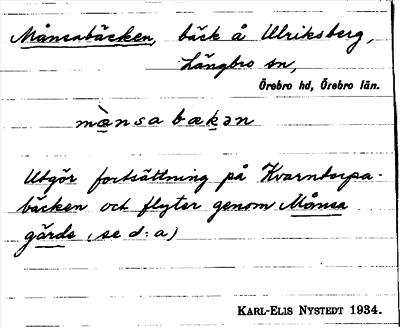 Månsabäcken, bäck å Ulriksberg,
Längbro sn,
Örebro hd, Örebro län.
mànsa bækən
Utgör fortsättning på Kvarntorpa-
bäcken och flyter genom Månsa
gärde (se d:a)
KARL-ELIS NYSTEDT 1934.